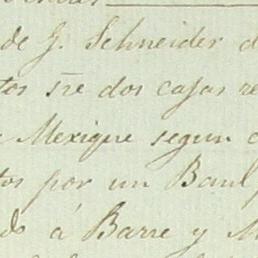 de J. Schneider d
tos sre dos cajas re
Mexique segun c
tos por un Baul
do á Barre y M